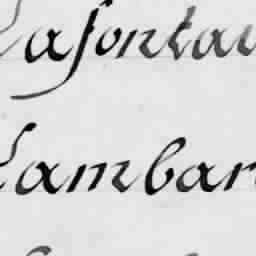 Lafontai
Lambar